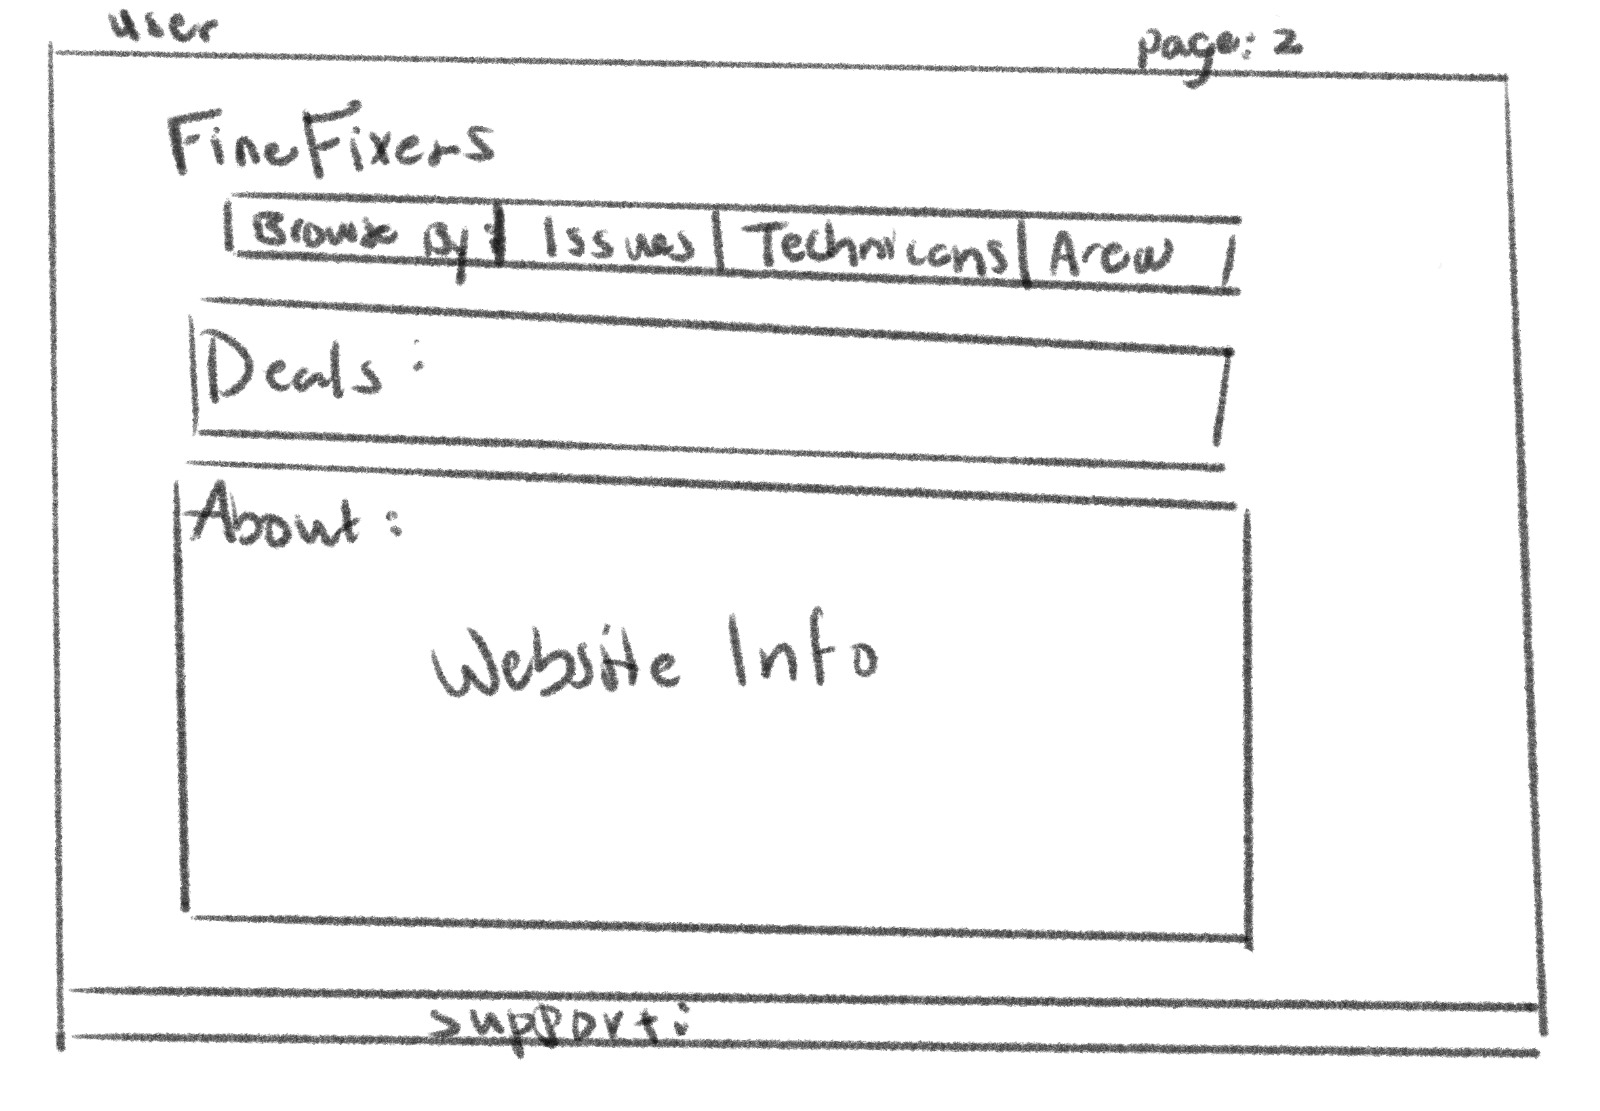 user
page: 2
FineFixers
Browse By: Issues Technicans Area
Deals:
About:
Website Info
support: